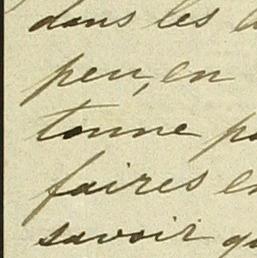 dans les
peu, en
tonne
faires
savoir